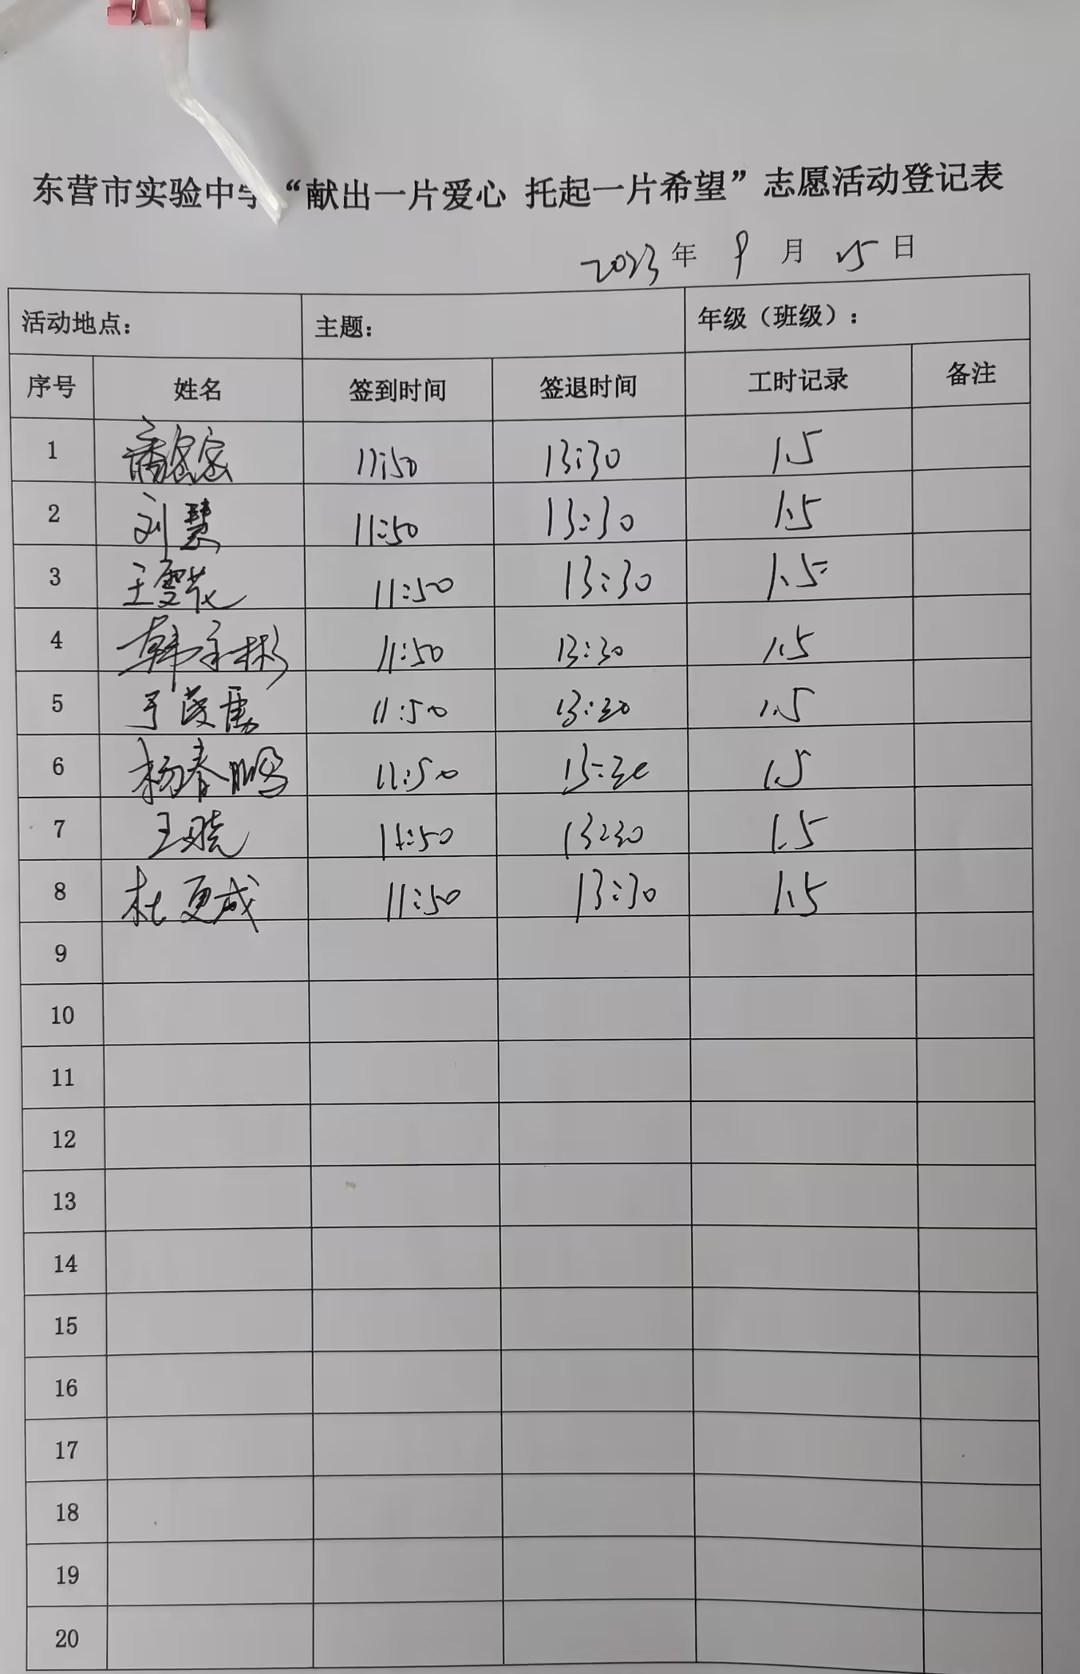 东营市实验中学“献出一片爱心 托起一片希望”志愿活动登记表
2023年 9月 25日
活动地点： 主题： 年级（班级）：
序号 姓名 签到时间 签退时间 工时记录 备注
1 11:50 13:30 1.5
2 刘慧 11:50 13:30 1.5
3 王雪花 11:50 13:30 1.5
4 11:50 13:30 1.5
5 11:50 13:30 1.5
6 杨春鹏 11:50 13:30 1.5
7 王晓 11:50 13:30 1.5
8 杜更成 11:50 13:30 1.5
9
10
11
12
13
14
15
16
17
18
19
20